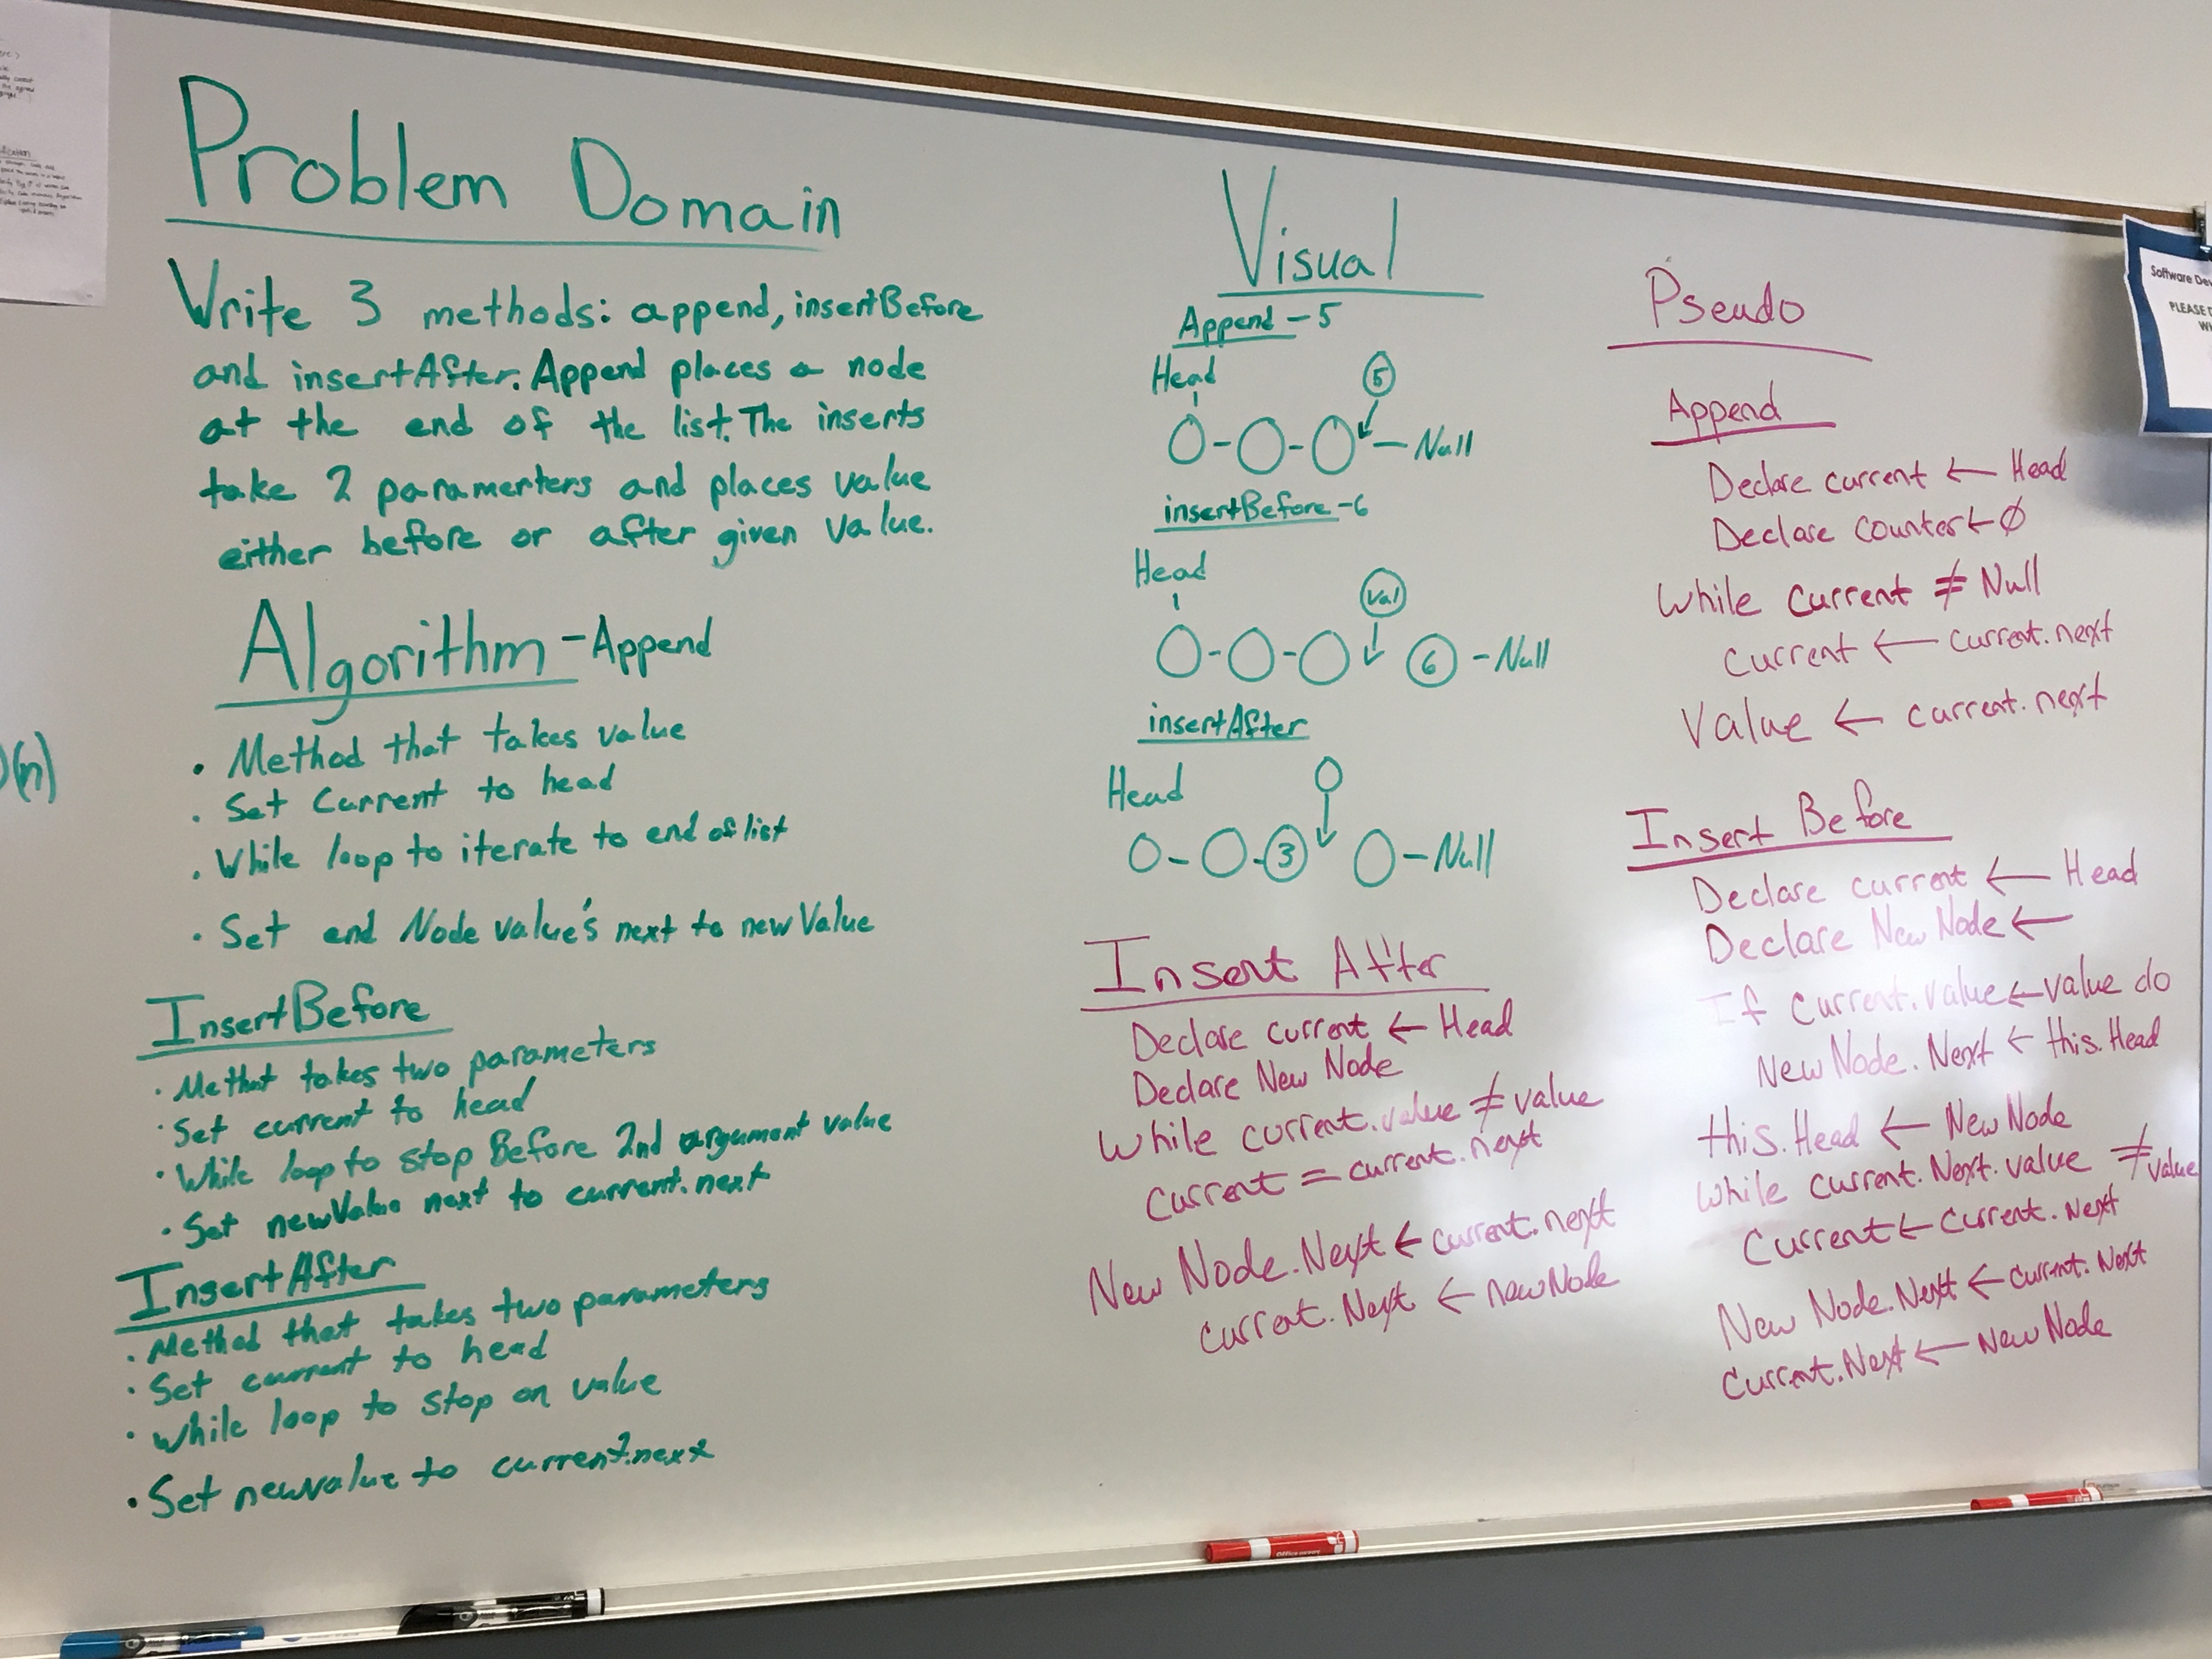 Problem Domain
Write 3 methods: append, insertBefore
and insertAfter. Append places a node
at the end of the list. The inserts
take 2 paramerters and places value
either before or after given value.
Algorithm - Append
• Method that takes value
• Set Current to head
• While loop to iterate to end of list
• Set end Node value's next to newValue
InsertBefore
• Methat takes two parameters
• Set current to head
• While loop to stop Before 2nd argument value
• Set newValue next to current.next
InsertAfter
• Method that takes two parameters
• Set current to head
• While loop to stop on value
• Set newvalue to current.next
(n)
Visual
Append - 5
Head
5
Null
insertBefore - 6
Head
val
6 - Null
insertAfter
Head
3
Null
Insert After
Declare current ← Head
Declare New Node
While current.value ≠ value
Current = current.next
New Node.Next ← current.next
current.Next ← newNode
Pseudo
Append
Declare current ← Head
Declare counter ← Ø
While current ≠ Null
Current ← current.next
Value ← current.next
Insert Before
Declare current ← Head
Declare New Node ←
If Current.value ← value do
New Node.Next ← this.Head
this.Head ← New Node
While current.Next.value ≠ value
Current ← Current.Next
New Node.Next ← current.Next
Current.Next ← New Node
Software Dev
PLEASE